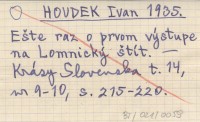 HOUDEK Ivan 1935.
Ešte raz o prvom výstupe
na Lomnický štít. —
Krásy Slovenska t. 14,
w 9-10, s. 215-220.